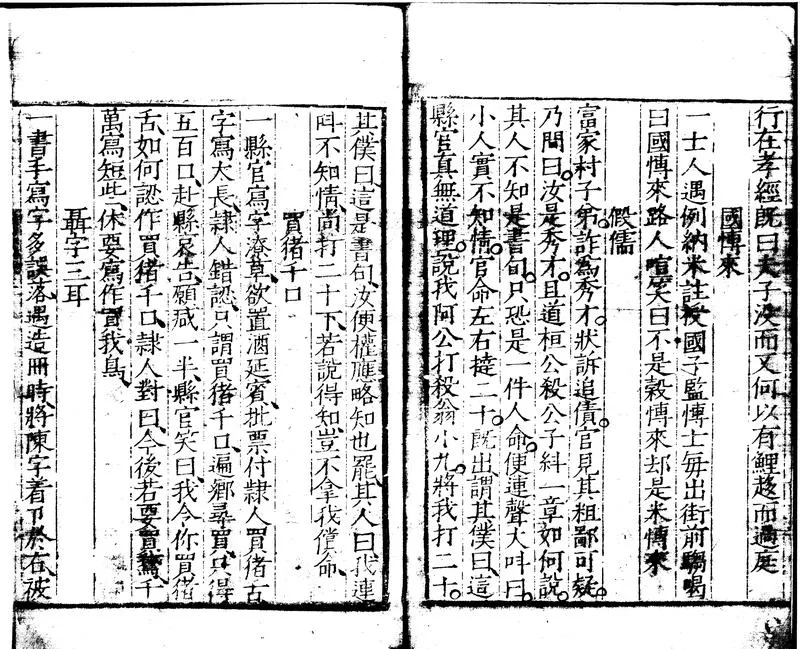 行在孝經既曰夫子沒而又何以有鯉趨而過庭
國愽來
一士人遇例納米註授國子監愽士每出街前騶喝
曰國愽來路人喧笑曰不是穀愽來却是米愽來
假儒
富家村子弟詐為秀才狀訴追債官見其粗鄙可疑
乃問曰汝是秀才且道桓公殺公子糾一章如何說
其人不知是書句只恐是一件人命便連聲大呌曰
小人實不知情官命左右撻二十既出謂其僕曰這
縣官真無道理說我阿公打殺翁小九將我打二十
其僕曰這是書句汝便權應略知也罷其人曰我連
呌不知情尚打二十下若說得知豈不拿我償命
買猪千口
一縣官寫字潦草欲置酒延賓批票付隸人買猪舌
字寫太長隸人錯認只謂買猪千口遍鄉尋買只得
五百口赴縣哀告願減一半縣官笑曰我令你買猪
舌如何認作買猪千口隸人對曰今後若要買鵞千
萬寫短些休要寫作買我鳥
聶字三耳
一書手寫字多誤落遇造冊時將陳字着卩於右被